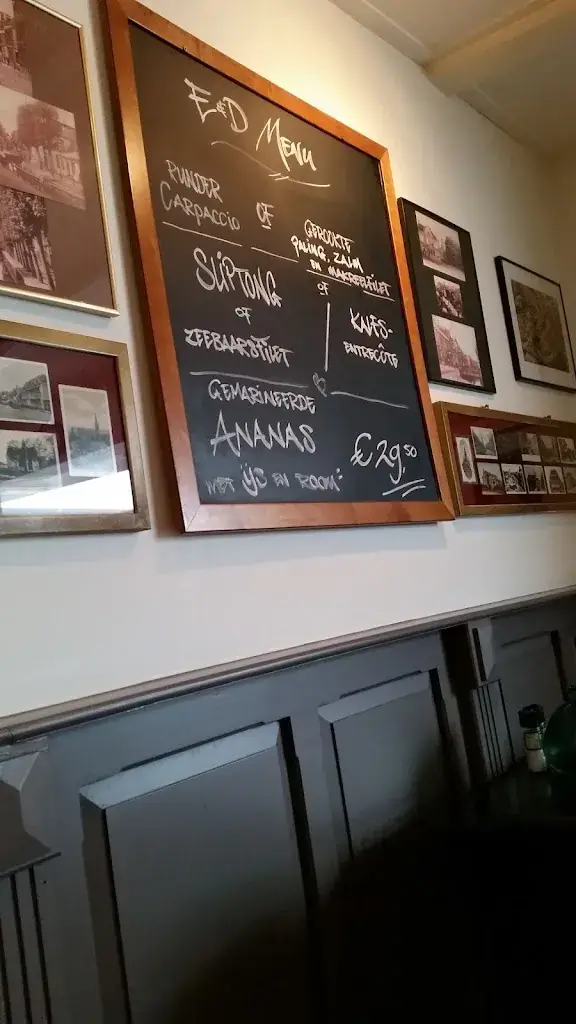 E&D MENU
RUNDER
CARPACCIO
OF
GEROOKTE
PALING, ZALM
EN MAKREELFILET
SLIPTONG
OF
ZEEBAARSFILET
OF
KALFS-
ENTRECÔTE
GEMARINEERDE
ANANAS
MET "IJS EN ROOM"
€29,50